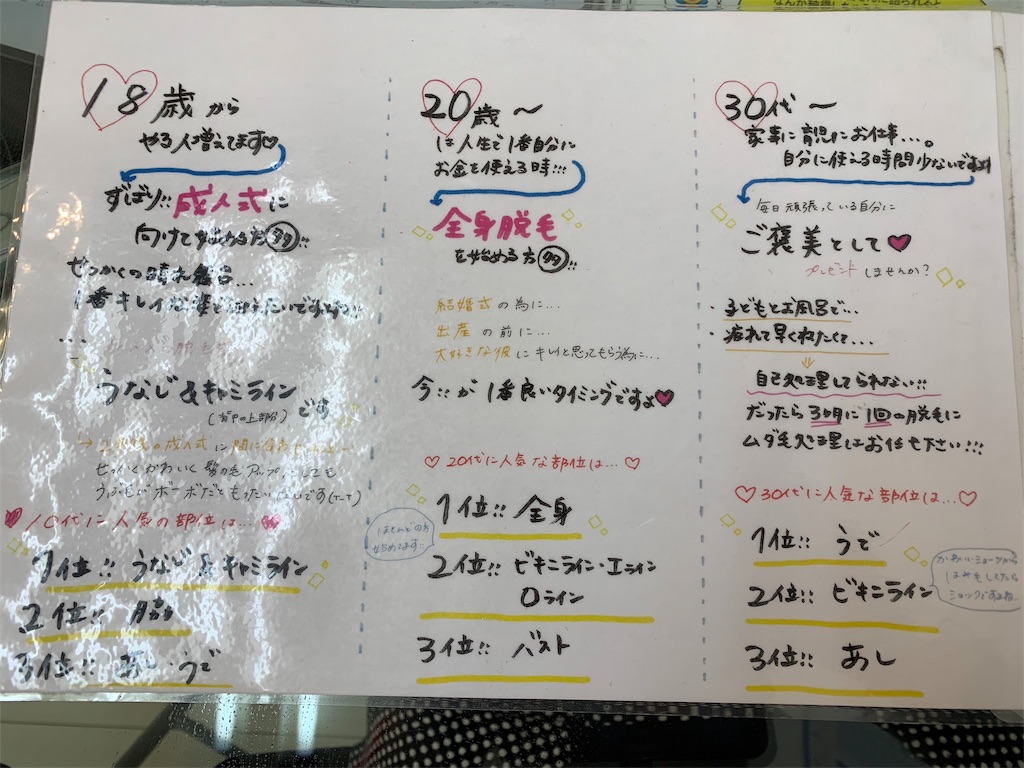 18歳から
やる人増えてます♡
ずばり!! 成人式に
向けて始める方多!!
せっかくの晴れ舞台...
1番キレイな姿で
うなじ&キャミライン
(背中の上部分) です
の成人式に
せっかくかわいく髪の毛アップにしても
うぶ毛がボーボーだともったいないです(T-T)
♥10代に人気の部位は...♥
1位!! うなじ&キャミライン
2位!! 脇
3位!! あし・うで
20歳〜
は人生で1番自分に
お金を使える時!!!
全身脱毛
を始める方多!!
結婚式の為に...
出産の前に...
大好きな彼にキレイと思ってもらう為に...
今!!が1番良いタイミングですよ♥
♡20代に人気な部位は...♡
ほとんどの方
始めてます!!
1位!! 全身
2位!! ビキニライン・Iライン
Oライン
3位!! バスト
30代〜
家事に育児にお仕事...。
自分に使える時間少ないです
毎日頑張っている自分に
ご褒美として♥
プレゼントしませんか?
・子どもとお風呂で...
・疲れて早くねたくて....
自己処理してられない!!
だったら3ヶ月に1回の脱毛に
ムダ毛処理はお任せ下さい!!!
♡30代に人気な部位は...♡
1位!! うで
2位!! ビキニライン
かわいいショーツから
はみ毛してたら
ショックですよね...
3位!! あし